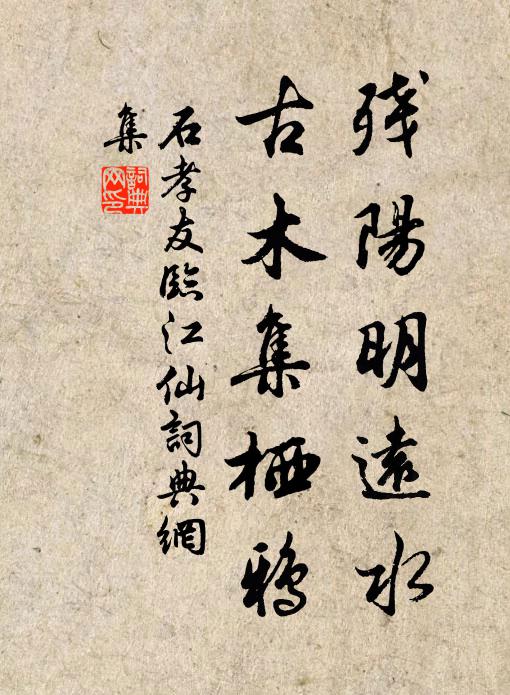 残陽明遠水
古木集栖鴉
石孝友臨江仙詞典網
集
詞典网印